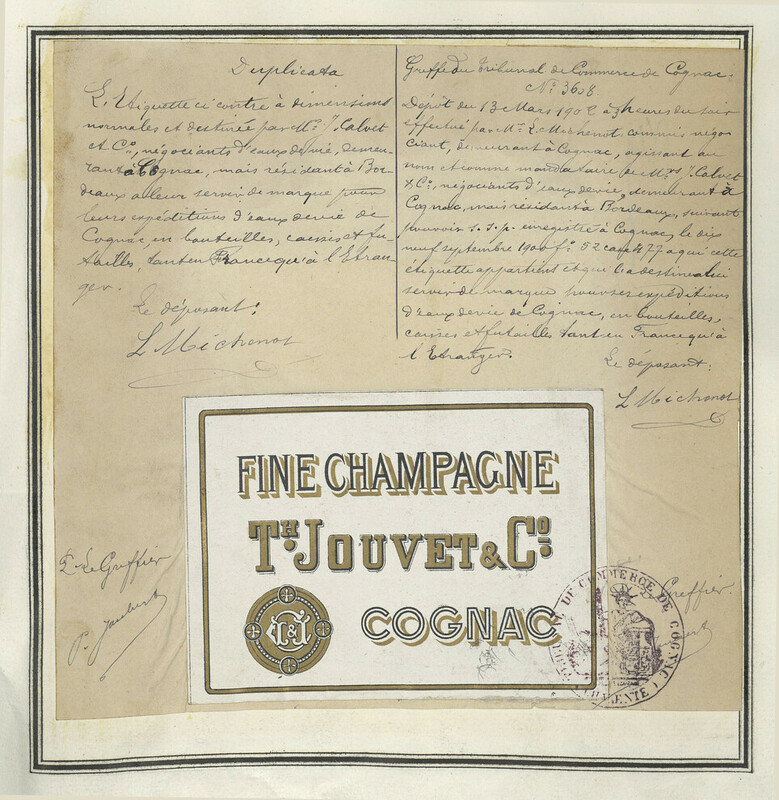 Duplicata
L'Etiquette ci contre à dimensions
normales et destinée par Mrs J. Calvet
et Cie, négociants d'eaux de vie, demeu-
rant à Cognac, mais résidant à Bor-
deaux a leur servir de marque pour
leurs expéditions d'eaux de vie de
Cognac, en bouteilles, caisses et fu-
tailles, tant en France qu'à l'Etran-
ger.
Le déposant:
L Michenot
Greffe du Tribunal de Commerce de Cognac.
No 3608
Dépôt du 13 Mars 1902 à heures du soir
effectué par Mr L. Michenot, commis négo
ciant, demeurant à Cognac, agissant au
nom et comme mandataire de Mrs J. Calvet
& Cie, négociants d'eaux de vie, demeurant à
Cognac, mais résidant à Bordeaux, suivant
pouvoir s. s. p. enregistré à Cognac, le dix
neuf septembre 1900 fo 52 case 477 a qui cette
étiquette appartient et qui l'a destinée à lui
servir de marque pour ses expéditions
d'eaux de vie de Cognac, en bouteilles,
caisses et futailles tant en France qu'à
l'Etranger.
Le déposant:
L Michenot
FINE CHAMPAGNE
TH. JOUVET & CO.
COGNAC
P. Le Greffier
P. Jaubert
Greffier
TRIBUNAL DE COMMERCE DE COGNAC
CHARENTE